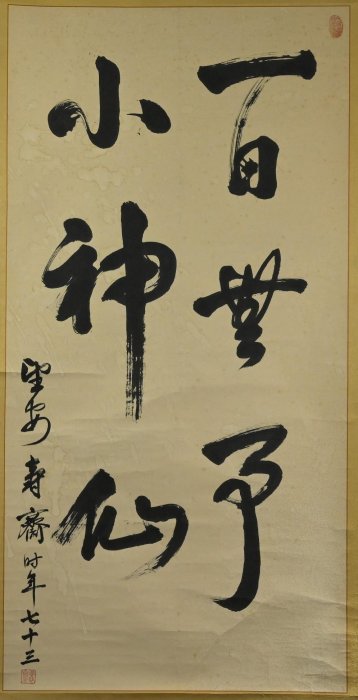 百無事
小神仙
望安壽齋时年七十三